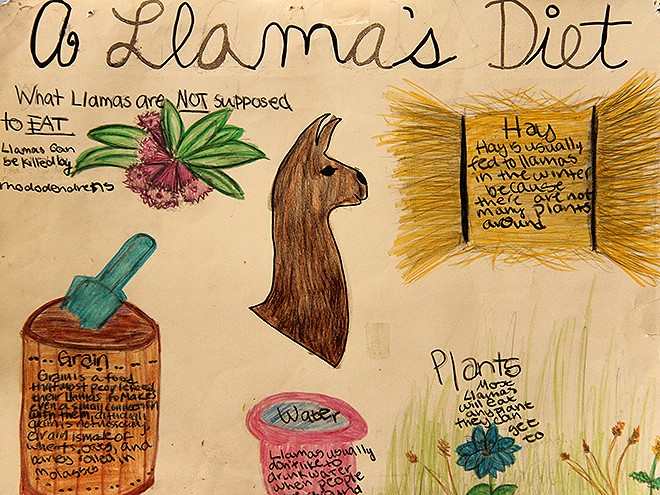 A Llama's Diet
What Llamas are NOT supposed
to EAT
Llamas can
be killed by
rhododendrens
Hay
Hay is usually
fed to llamas
in the winter
because
there are not
many plants
around
Grain
Grain is a food
that most people feed
their llamas to makes
even a small connection
with them, although
grain is not nessecary.
Grain is make of
wheats, oats, and
barley rolled in
molasses
Water
Llamas usually
don't like to
drink water
when people
are around
Plants
Most
Llamas
will eat
any plant
they can get
to